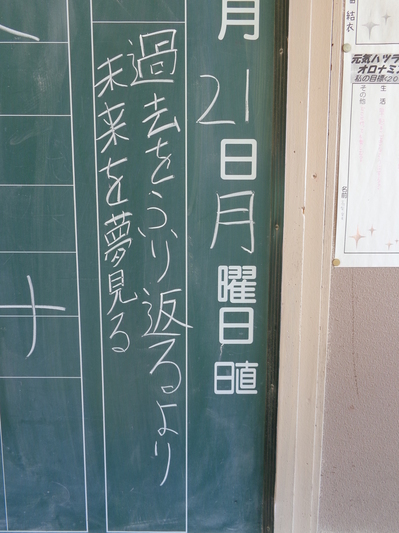 月21日月曜日
日直
過去をふり返るより
未来を夢見る
ナ
結衣
元気ハツラ
オロナミン
私の目標<20
生活
その他
名前